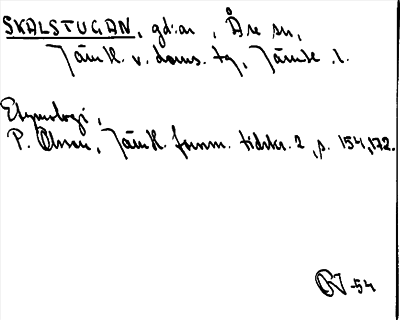 SKALSTUGAN, gd:ar , Åre sn,
Jämtl. v. doms. tg, Jämtl. l.
Etymologi,
P. Olsson, Jämtl. fornm. tidskr. 2, s. 154, 172.
-54